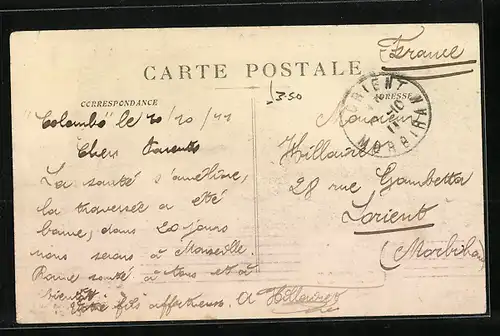 France
CARTE POSTALE
CORRESPONDANCE
ADRESSE
3.50
"Colombo" le 10/10/11
Chers Parents
La santé s'améliore,
la traversée a été
bonne, dans 20 jours
nous serons à Marseille.
Bonne santé à tous et à
bientôt
Votre fils affectueux. A Hillaire
Monsieur
Hillaire
28 rue Gambetta
Lorient
(Morbihan)
LORIENT
MORBIHAN